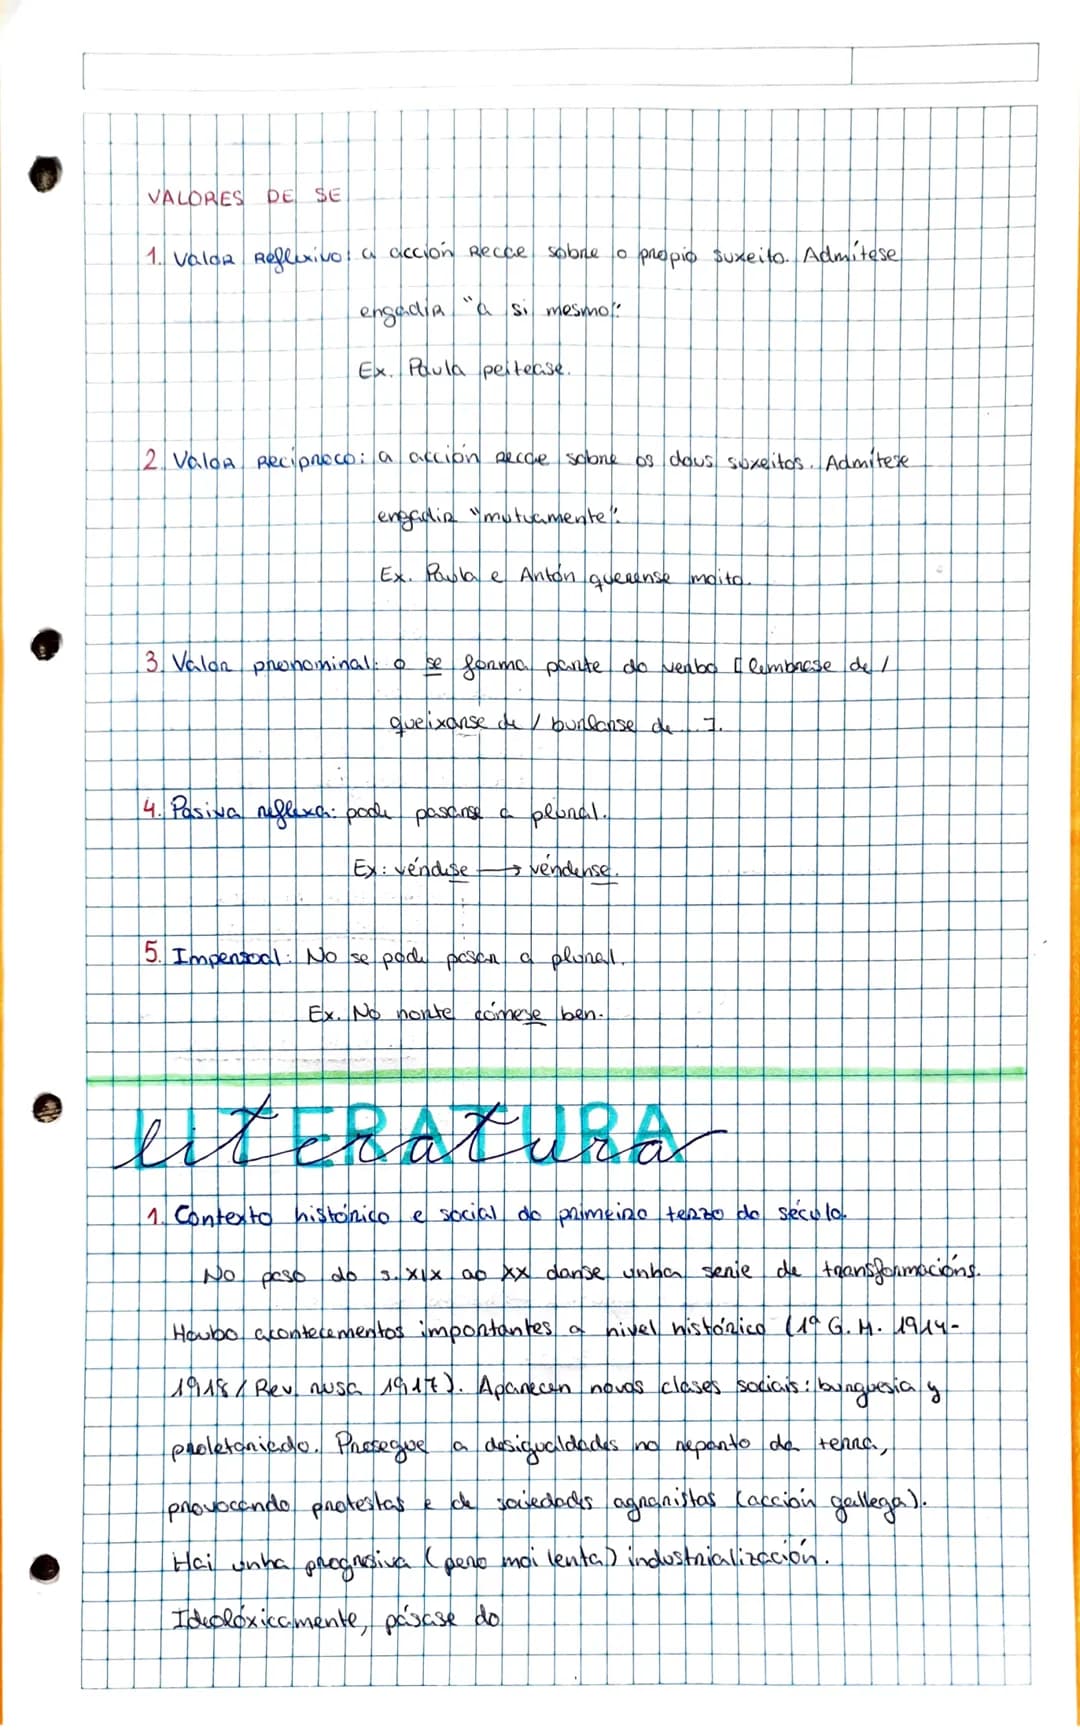 VALORES DE SE
1. Valor Reflexivo: a acción Recae sobre o propio suxeito. Admítese
engadir "a si mesmo".
Ex. Paula peitease.
2. Valor Recíproco: a acción recae sobre os dous suxeitos. Admítese
engadir "mutuamente".
Ex. Paula e Antón quérense moito.
3. Valor pronominal: o se forma parte do verbo [lembrase de /
queixarse de / burlarse de...].
4. Pasiva reflexa: pode pasarse a plural.
Ex: véndese → véndense.
5. Impersoal: No se pode pasar a plural.
Ex. No norte cómese ben.
LITERATURA
1. Contexto histórico e social do primeiro terzo do século.
No paso do s. XIX ao XX danse unha serie de transformacións.
Houbo acontecementos importantes a nivel histórico (1ª G. M. 1914-
1918 / Rev. rusa 1917). Aparecen novas clases sociais: burguesía y
proletariado. Prosegue a desigualdades no reparto da terra,
provocando protestas e de sociedades agraristas (acción gallega).
Hai unha progresiva (pero moi lenta) industrialización.
Ideolóxicamente, pásase do